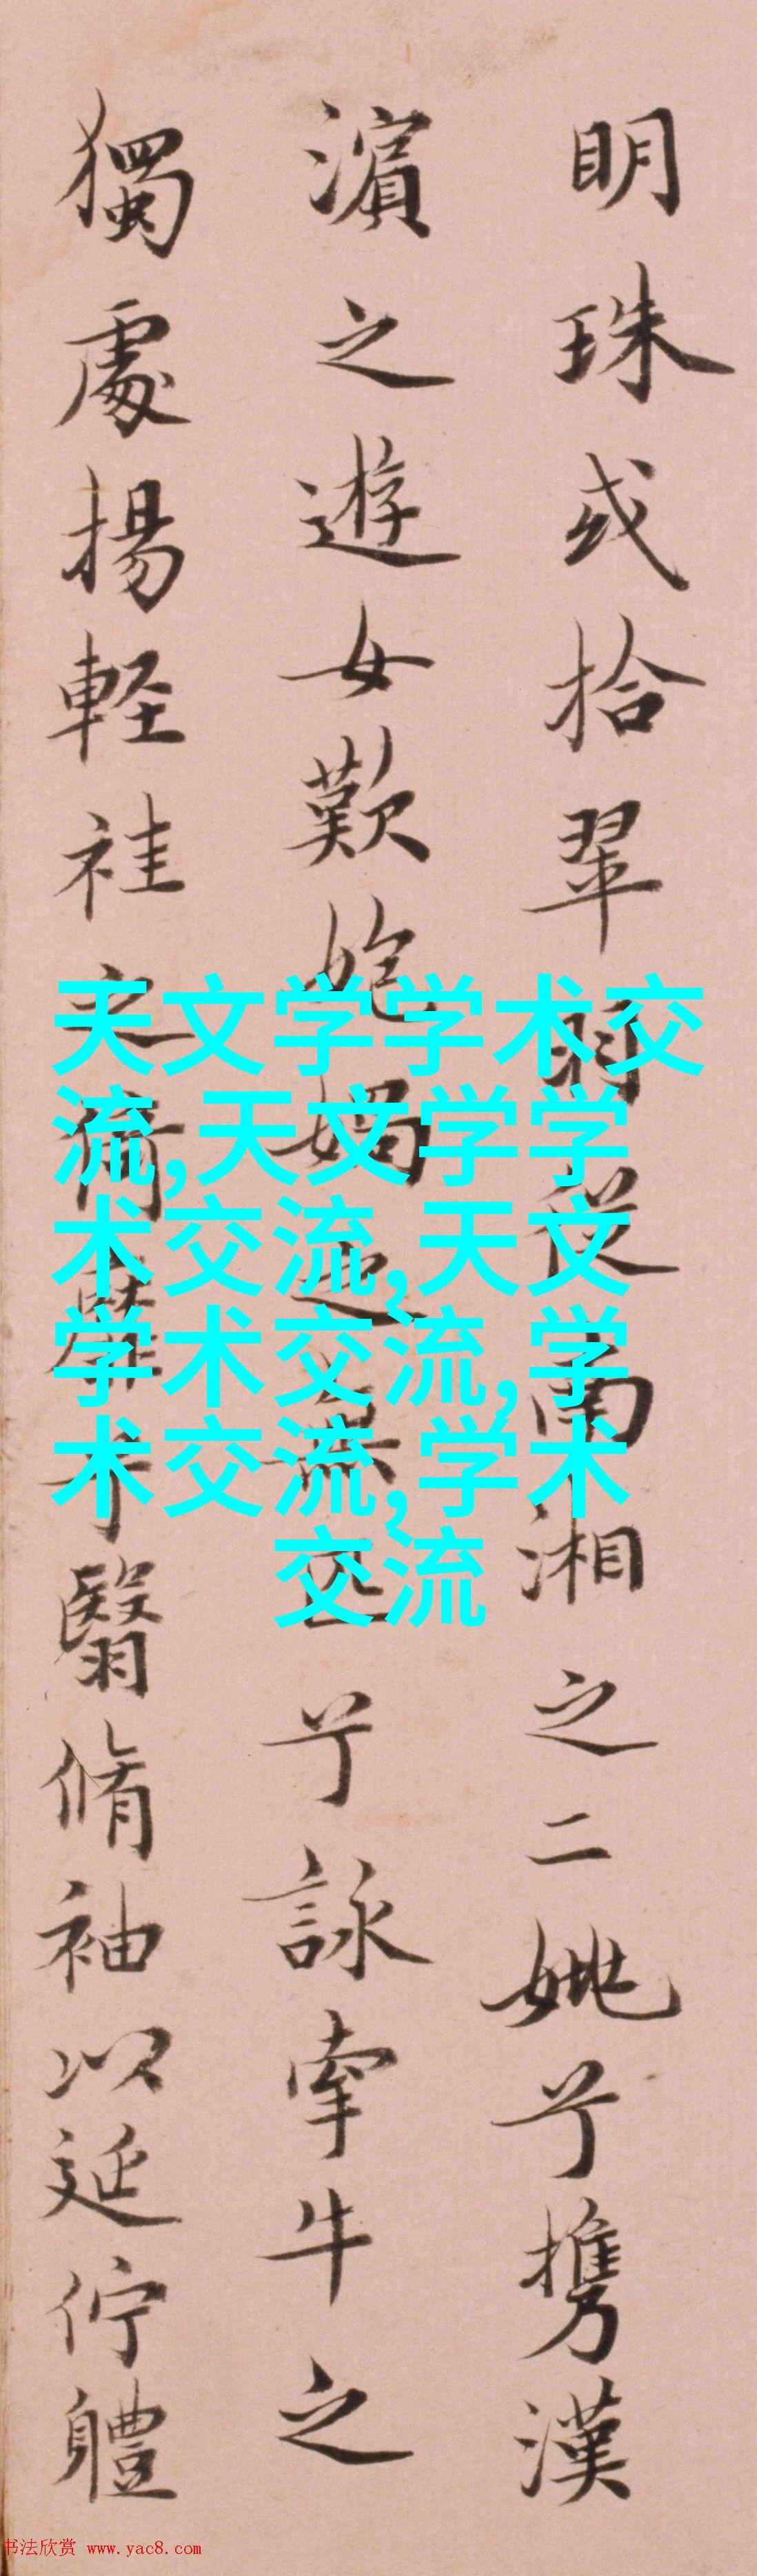 明珠或拾翠羽從南湘之二姚兮攜漢
濵之遊女歎匏媧之無匹兮詠牽牛之
獨處揚軽袿之猗靡兮翳脩袖以延佇體
天文学学术交
流,天文学学
术交流,天文
学术交流,学
术交流,学术
交流
书法欣赏 www.yac8.com